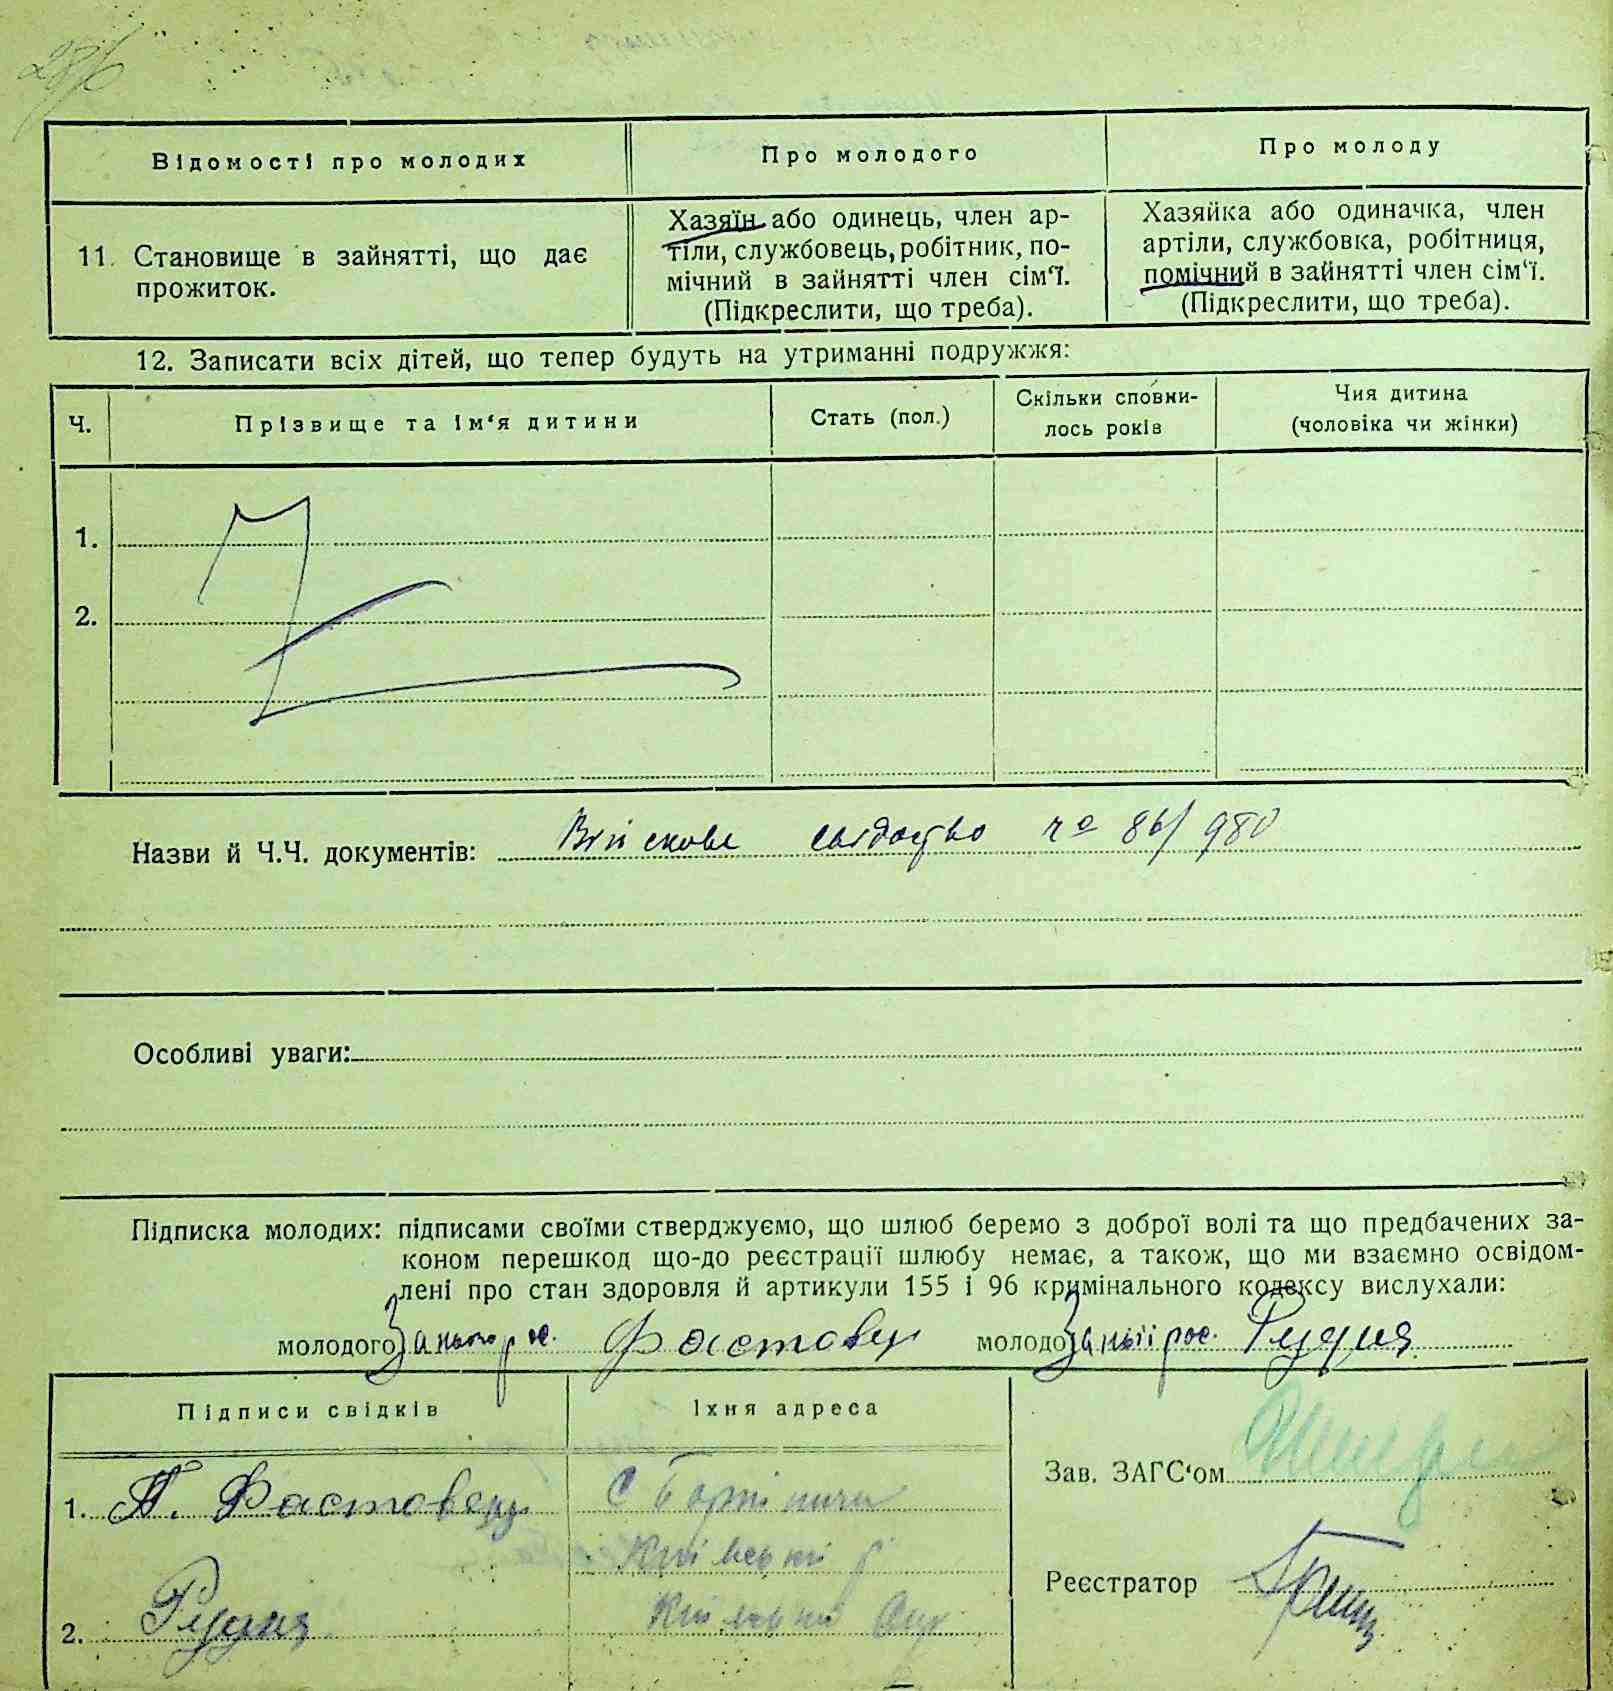 Відомості про молодих
Про молодого
Про молоду
11. Становище в зайнятті, що дає
прожиток.
Хазяїн або одинець, член ар-
тіли, службовець, робітник, по-
мічний в зайнятті член сім'ї.
(Підкреслити, що треба).
Хазяйка або одиначка, член
артіли, службовка, робітниця,
помічний в зайнятті член сім'ї.
(Підкреслити, що треба).
12. Записати всіх дітей, що тепер будуть на утриманні подружжя:
Ч.
Прізвище та ім'я дитини
Стать (пол.)
Скільки сповни-
лось років
Чия дитина
(чоловіка чи жінки)
1.
2.
Назви й Ч.Ч. документів: Війскове свідоцтво № 86/980
Особливі уваги:
Підписка молодих: підписами своїми стверджуємо, що шлюб беремо з доброї волі та що предбачених за-
коном перешкод що-до реєстрації шлюбу немає, а також, що ми взаємно освідом-
лені про стан здоровля й артикули 155 і 96 кримінального кодексу вислухали:
молодого За нього рос. Фастовец молодої За неї рос. Рудня
Підписи свідків
Їхня адреса
1. П. Фастовець
С Бортничи
Київської
2. Рудня
Київської Окр
Зав. ЗАГС'ом
Реєстратор